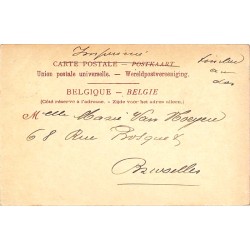 Imprimé
CARTE POSTALE — POSTKAART
Union postale universelle. — Wereldpostvereeniging.
BELGIQUE - BELGIE
(Côté réservé à l'adresse. - Zijde voor het adres alleen.)
Melle Marie Van
68 Rue Bosquet
Bruxelles